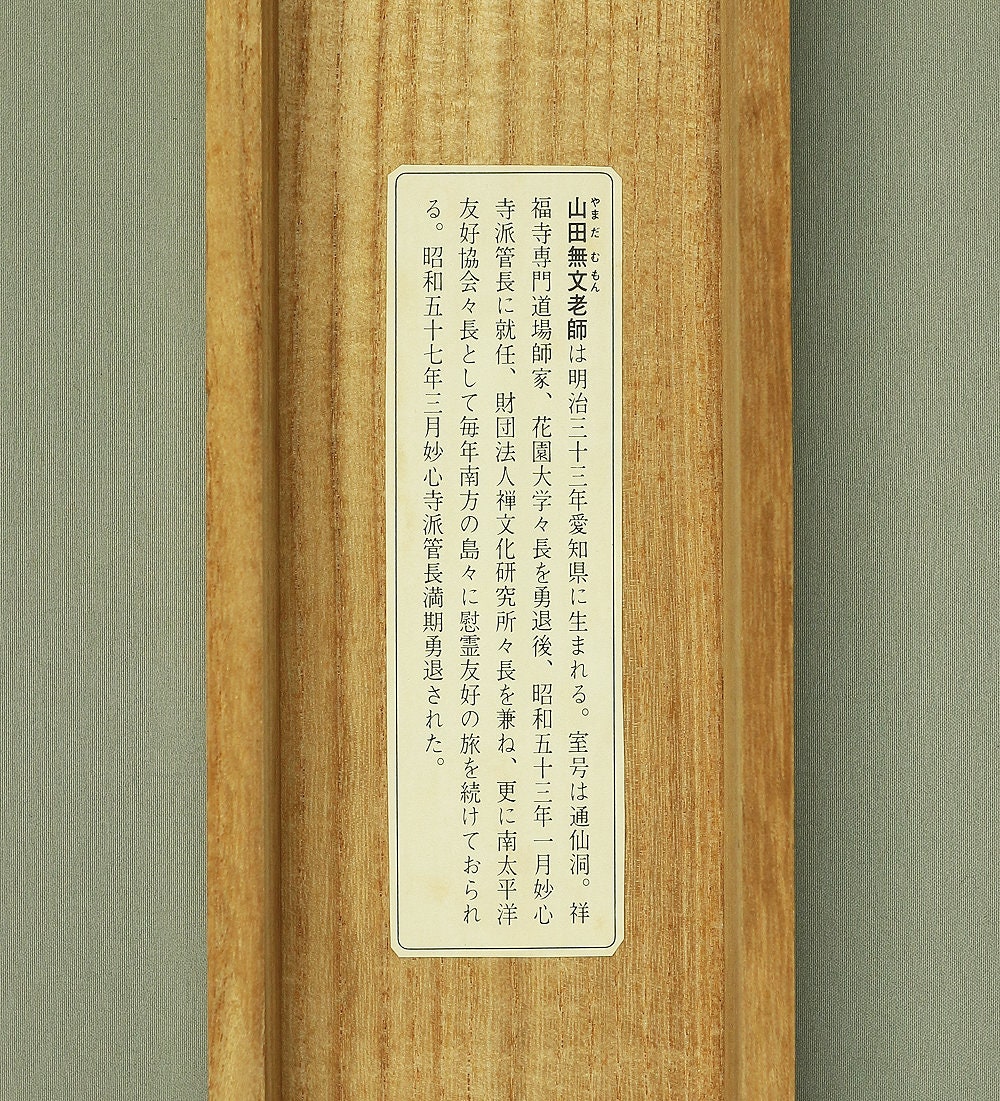 山田無文老師は明治三十三年愛知県に生まれる。室号は通仙洞。祥
福寺専門道場師家、花園大学々長を勇退後、昭和五十三年一月妙心
寺派管長に就任、財団法人禅文化研究所々長を兼ね、更に南太平洋
友好協会々長として毎年南方の島々に慰霊友好の旅を続けておられ
る。昭和五十七年三月妙心寺派管長満期勇退された。
やまだむもん